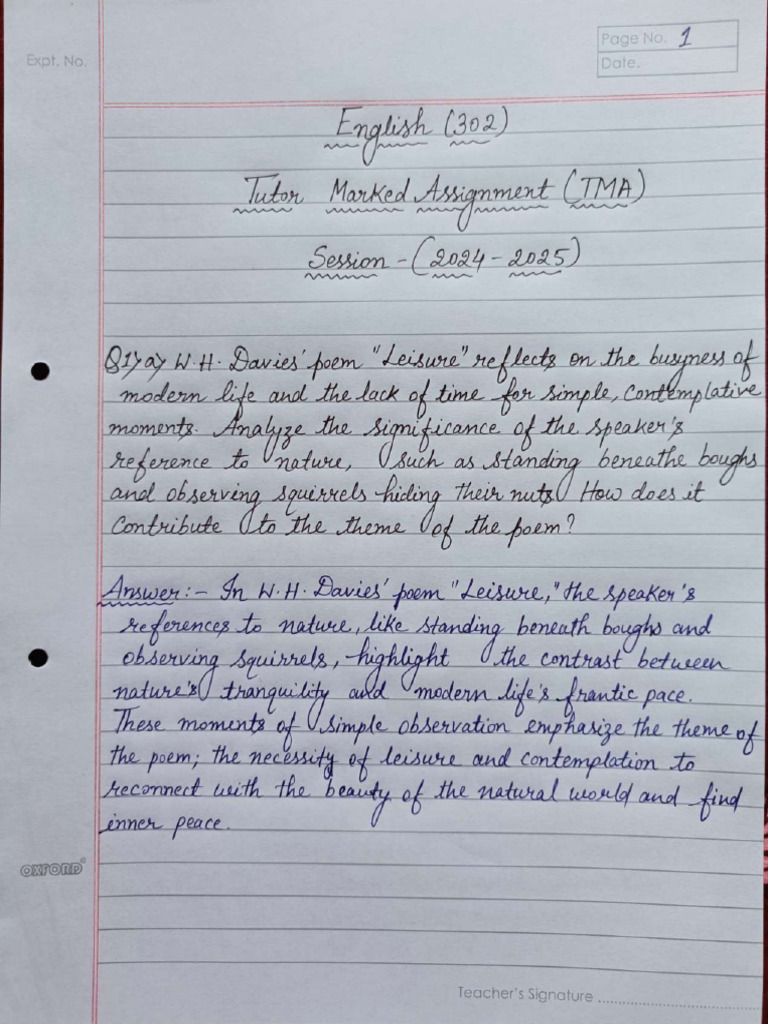 Page No. 1
Expt. No.
Date.
English (302)
Tutor Marked Assignment (TMA)
Session - (2024 - 2025)
Q1) a) W.H. Davies' poem "Leisure" reflects on the busyness of
modern life and the lack of time for simple, contemplative
moments. Analyze the significance of the speaker's
reference to nature, such as standing beneathe boughs
and observing squirrels hiding their nuts. How does it
contribute to the theme of the poem?
Answer:- In W.H. Davies' poem "Leisure," the speaker's
references to nature, like standing beneath boughs and
observing squirrels, highlight the contrast between
nature's tranquility and modern life's frantic pace.
These moments of simple observation emphasize the theme of
the poem; the necessity of leisure and contemplation to
reconnect with the beauty of the natural world and find
inner peace.
OXFORD
Teacher's Signature